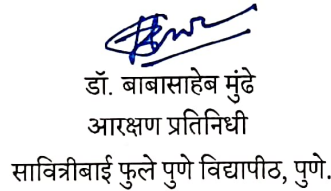 डॉ. बाबासाहेब मुंढे
आरक्षण प्रतिनिधी
सावित्रीबाई फुले पुणे विद्यापीठ, पुणे.